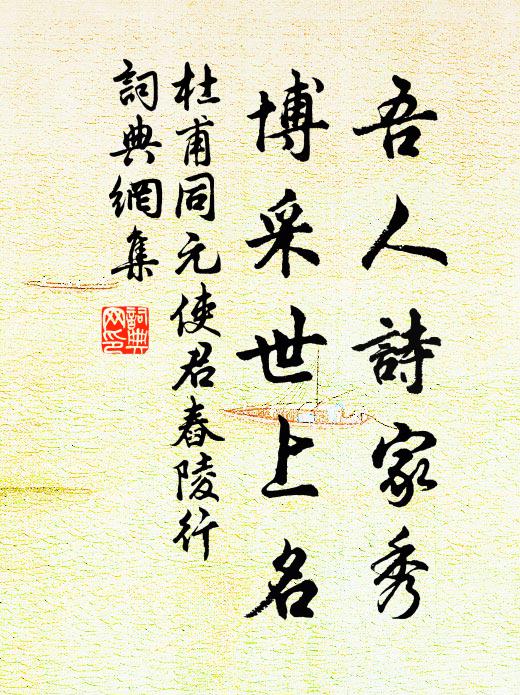 吾人詩家秀
博采世上名
杜甫同元使君舂陵行
詞典網集
詞典網印